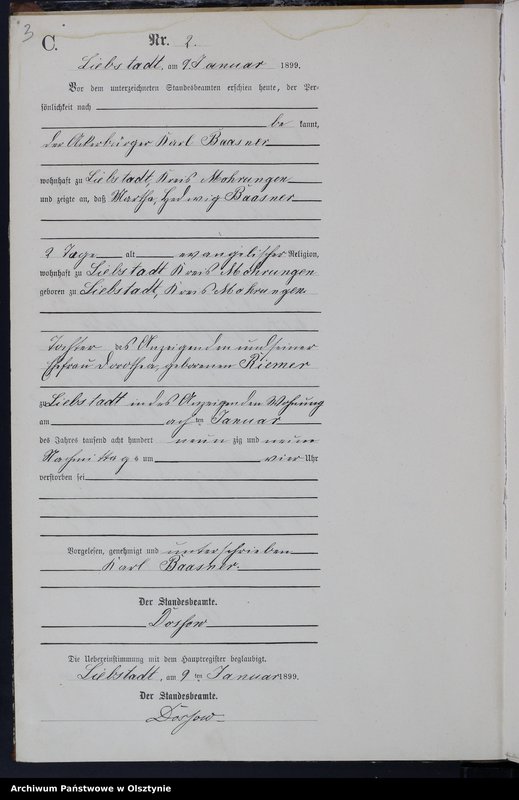 3
C.
Nr. 2.
Liebstadt, am 9 Januar 1899.
Vor dem unterzeichneten Standesbeamten erschien heute, der Per-
sönlichkeit nach
be kannt,
der Ackerbürger Karl Baasner
wohnhaft zu Liebstadt, Kreis Mohrungen
und zeigte an, daß Martha, Hedwig Baasner
2 Tage alt evangelischer Religion,
wohnhaft zu Liebstadt Kreis Mohrungen
geboren zu Liebstadt, Kreis Mohrungen
Tochter des Anzeigenden und seiner
Ehefrau Dorothea, geborenen Riemer
zu Liebstadt in des Anzeigenden Wohnung
am achten Januar
des Jahres tausend acht hundert neun zig und neun
Nachmittags um vier Uhr
verstorben sei
Vorgelesen, genehmigt und unterschrieben
Karl Baasner
Der Standesbeamte.
Die Uebereinstimmung mit dem Hauptregister beglaubigt.
Liebstadt, am 9 ten Januar 1899.
Der Standesbeamte.
Archiwum Państwowe w Olsztynie